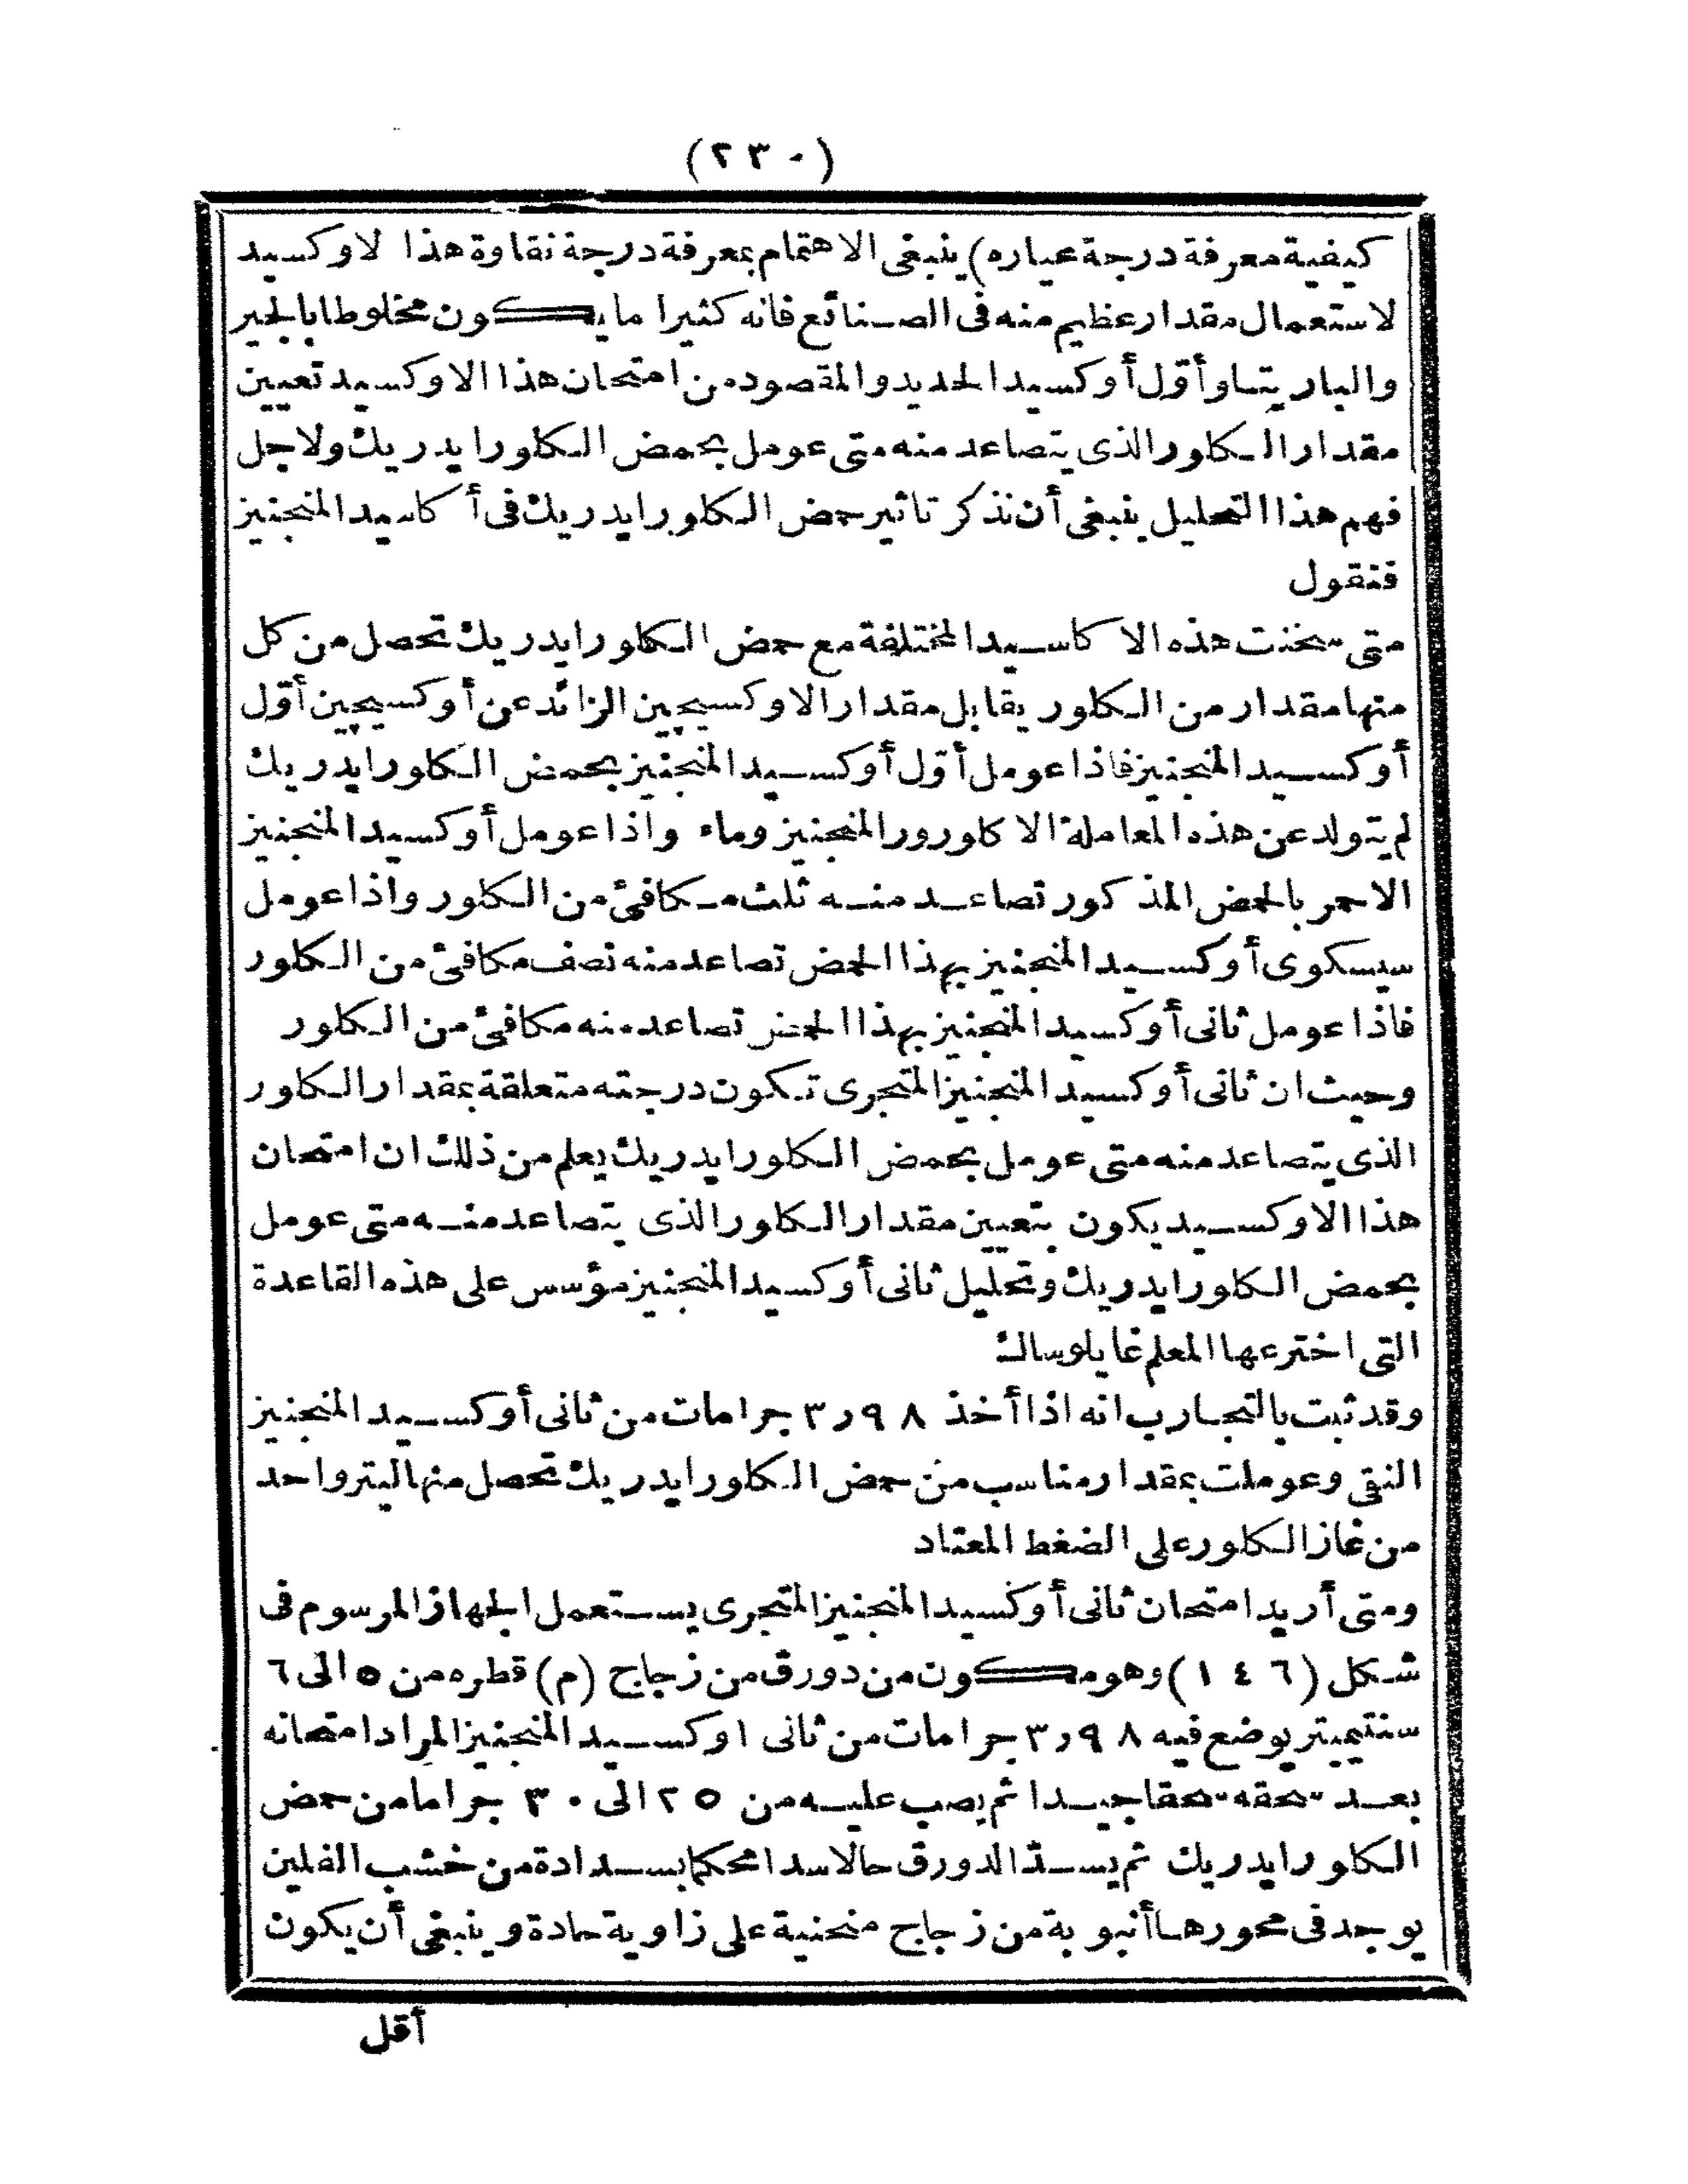 (٢٣٠)
كيفية معرفة درجة عياره) ينبغى الاهتمام بمعرفة درجة نقاوة هذا لاوكسيد
لاستعمال مقدار عظيم منه فى الصنائع فانه كثيرا ما يكون مخلوطا بالجير
والباريتا وأقل أوكسيد الحديد والمقصود من امتحان هذا الاوكسيد تعيين
مقدار الكلور الذى يتصاعد منه متى عومل بحمض الكلورايدريك ولاجل
فهم هذا التحليل ينبغى أن نذكر تاثير حمض الكلورايدريك فى أكاسيد المنجنيز
فنقول
متى سخنت هذه الاكاسيد المختلفة مع حمض الكلورايدريك تحصل من كل
منها مقدار من الكلور يقابل مقدار الاوكسيچين الزائد عن أوكسيچين أول
أوكسيد المنجنيز فاذا عومل أول أوكسيد المنجنيز بحمض الكلورايدريك
لم يتولد عن هذه المعاملة الا كلورور المنجنيز وماء واذا عومل أوكسيد المنجنيز
الاحمر بالحمض المذكور تصاعد منه ثلث مكافئ من الكلور واذا عومل
سيسكوى أوكسيد المنجنيز بهذا الحمض تصاعد منه نصف مكافئ من الكلور
فاذا عومل ثانى أوكسيد المنجنيز بهذا الحمض تصاعد منه مكافئ من الكلور
وحيث ان ثانى أوكسيد المنجنيز المتجرى تكون درجته متعلقة بمقدار الكلور
الذى يتصاعد منه متى عومل بحمض الكلورايدريك يعلم من ذلك ان امتحان
هذا الاوكسيد يكون بتعيين مقدار الكلور الذى يتصاعد منه متى عومل
بحمض الكلورايدريك وتحليل ثانى أوكسيد المنجنيز مؤسس على هذه القاعدة
التى اخترعها المعلم غايلوساك
وقد ثبت بالتجارب انه اذا أخذ ٣٫٩٨ جرامات من ثانى أوكسيد المنجنيز
النقى وعوملت بمقدار مناسب من حمض الكلورايدريك تحصل منها ليتر واحد
من غاز الكلور على الضغط المعتاد
ومتى أريد امتحان ثانى أوكسيد المنجنيز المتجرى يستعمل الجهاز المرسوم فى
شكل (١٤٦) وهو مكون من دورق من زجاج (م) قطره من ٥ الى ٦
سنتيميتر يوضع فيه ٣٫٩٨ جرامات من ثانى اوكسيد المنجنيز المراد امتحانه
بعد سحقه سحقا جيدا ثم يصب عليه من ٢٥ الى ٣٠ جراما من حمض
الكلورايدريك ثم يسدّ الدورق حالا سدا محكما بسدادة من خشب الفلين
يوجد فى محورها أنبوبة من زجاج منحنية على زاوية حادة وينبغى أن يكون
أقل